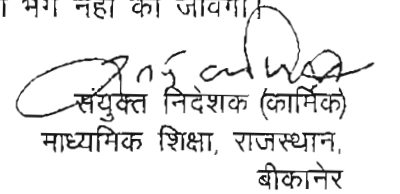 भंग नहीं की जावेगी।
संयुक्त निदेशक (कार्मिक)
माध्यमिक शिक्षा, राजस्थान,
बीकानेर